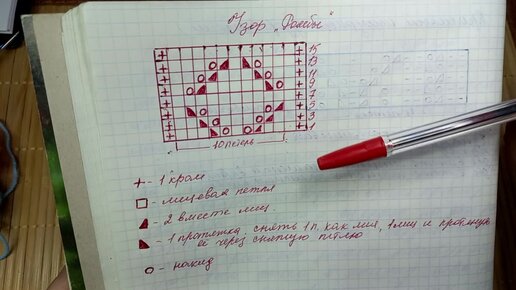 Узор "Ромбы"
15
13
11
9
7
5
3
1
10 петель
+ - 1 кром
□ - лицевая петля
◢ - 2 вместе лиц.
◣ - 1 протяжка: снять 1 п. как лиц, 1 лиц и протянуть
её через снятую петлю
о - накид